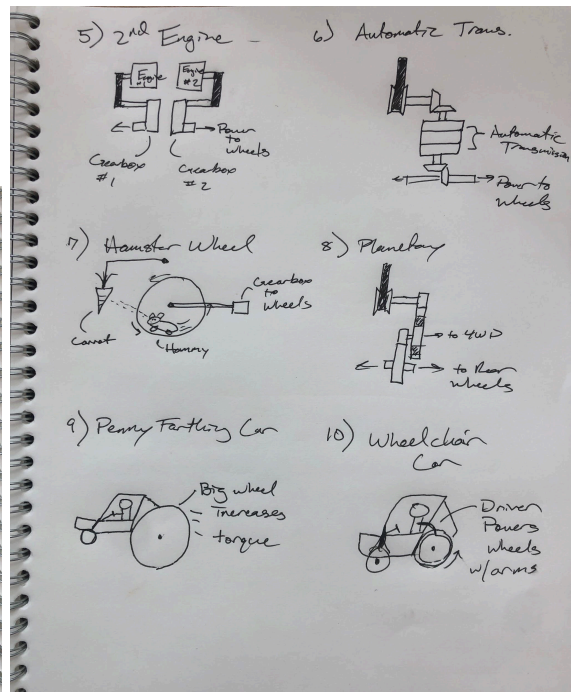 5) 2nd Engine -
Engine
#1
Engine
#2
Power
to
wheels
Gearbox
#1
Gearbox
#2
6) Automatic Trans.
Automatic
Transmission
Power to
wheels
7) Hamster Wheel
Gearbox
to
wheels
Carrot
Hammy
8) Planetary
to 4WD
to Rear
wheels
9) Penny Farthing Car
Big wheel
Increases
torque
10) Wheelchair
Car
Driver
Powers
wheels
w/arms